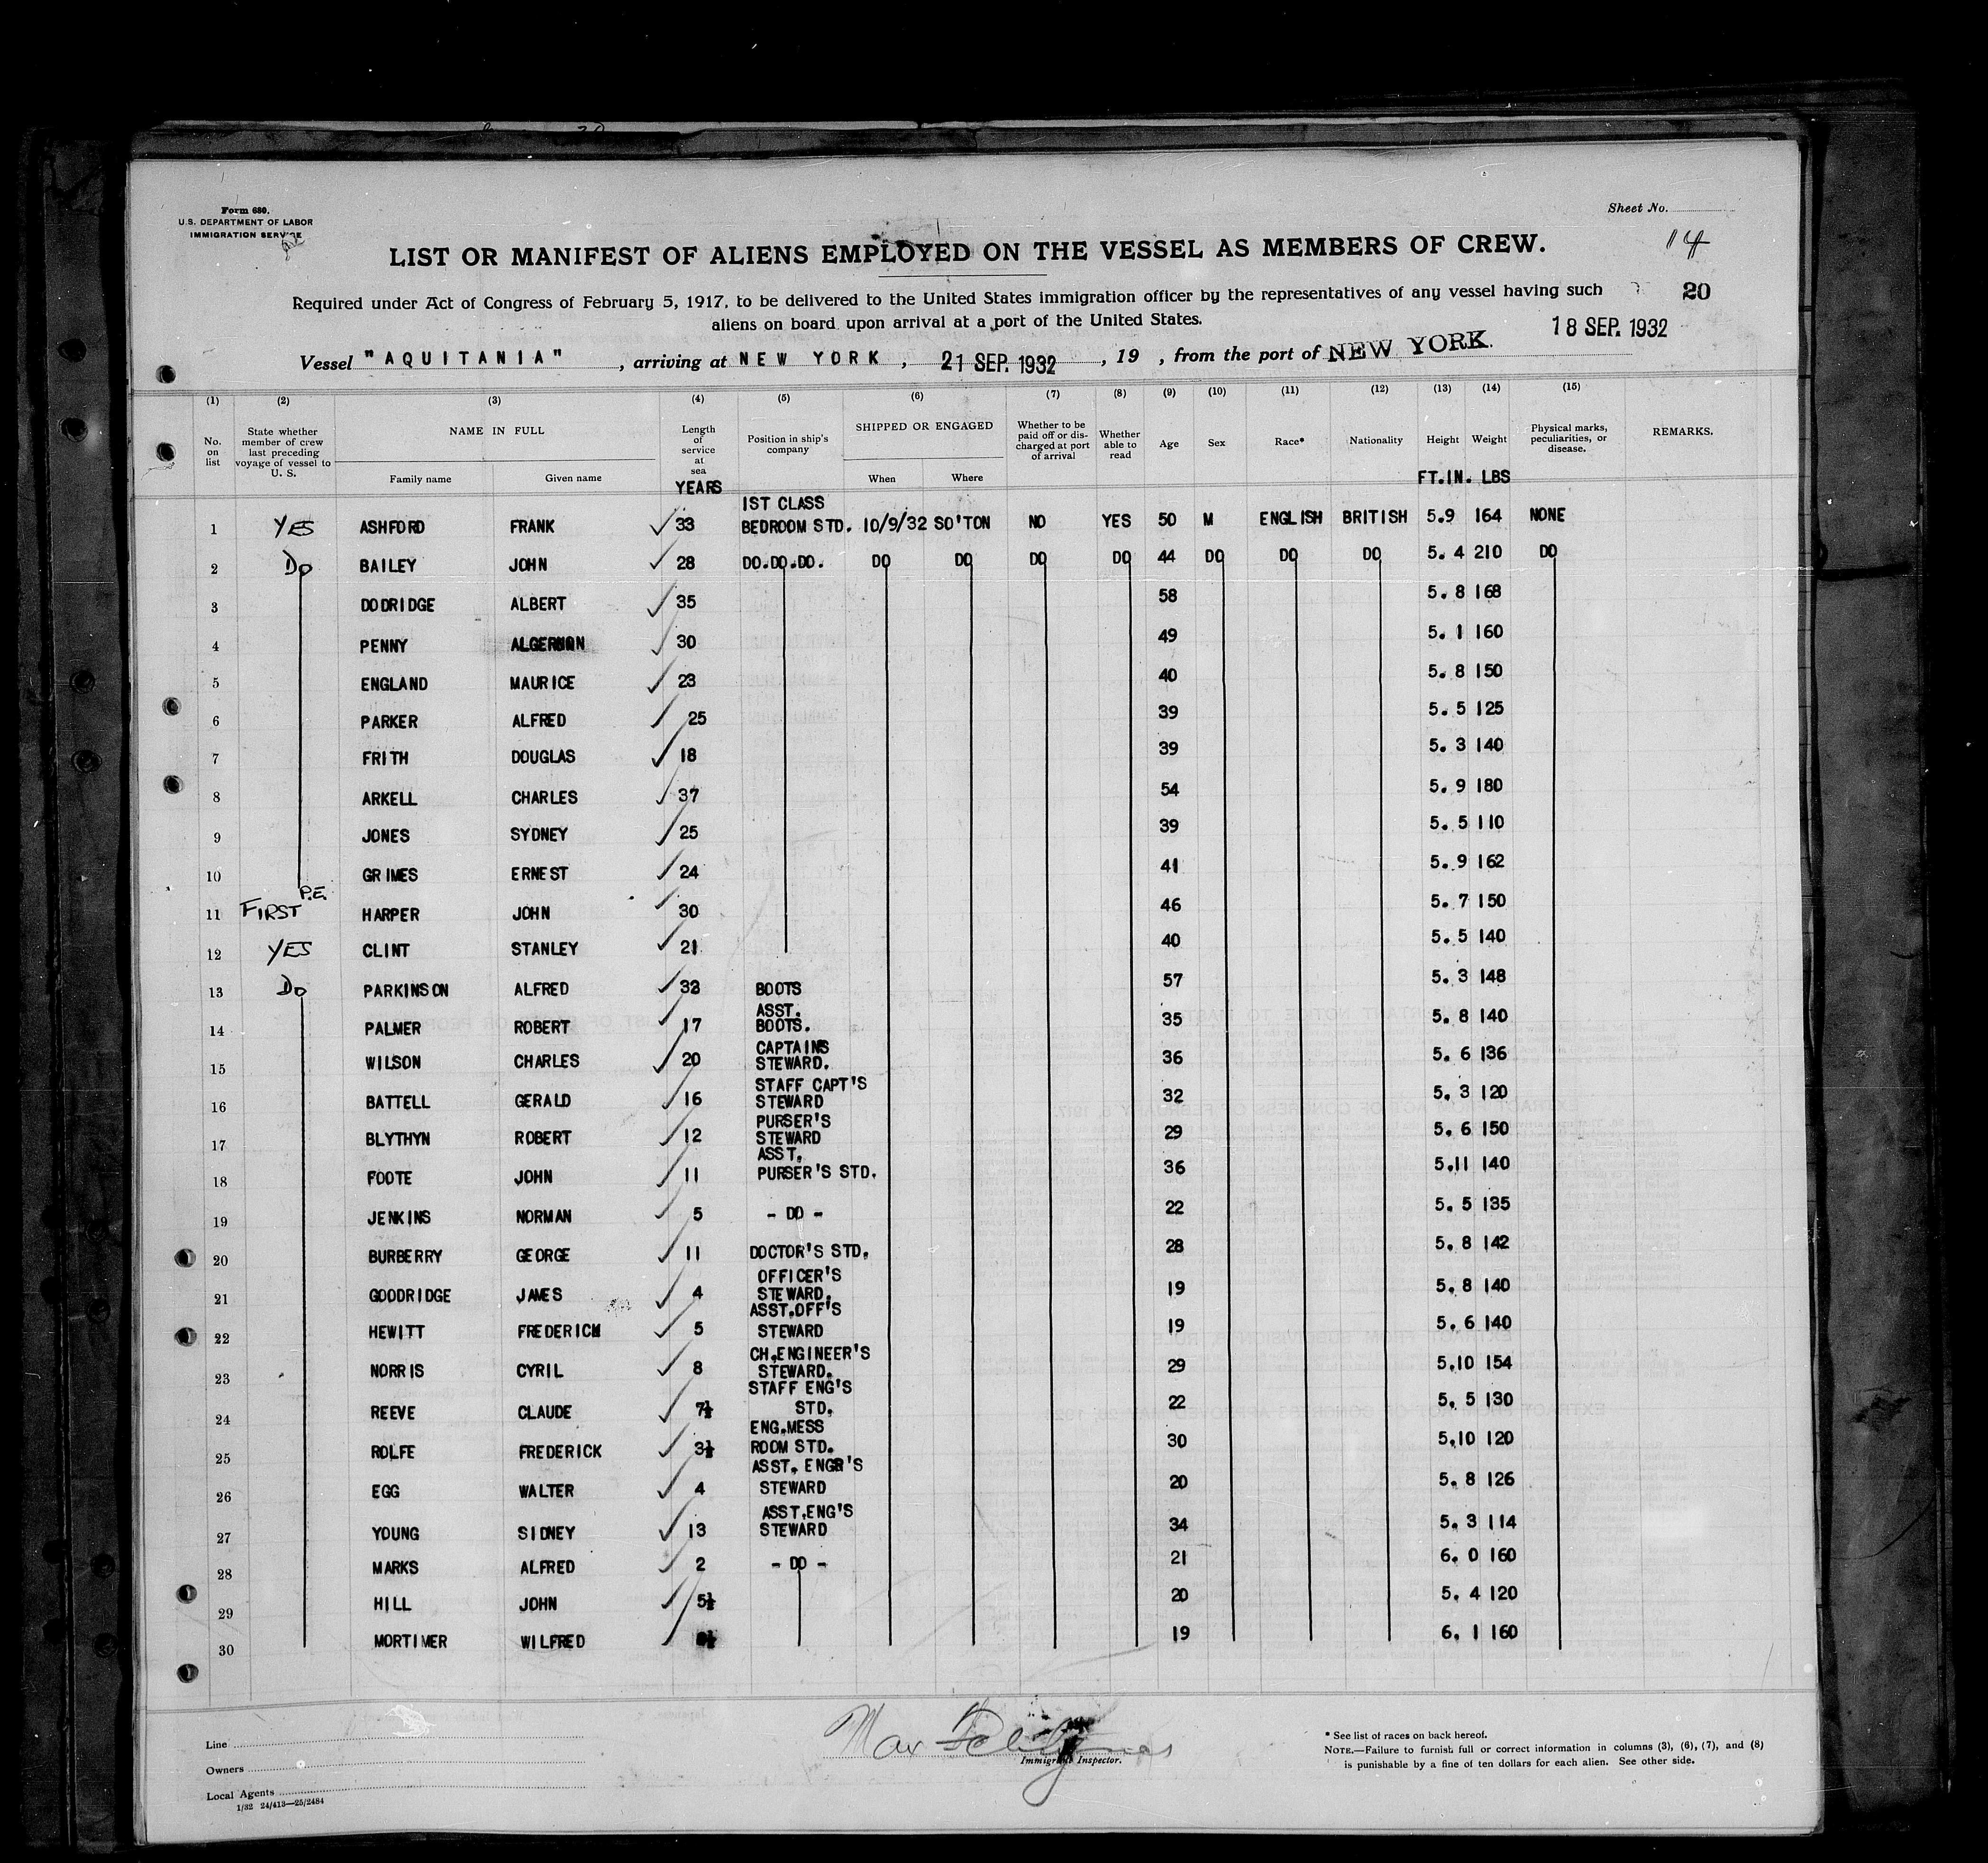 Form 680.
U.S. DEPARTMENT OF LABOR
IMMIGRATION SERVICE
Sheet No.
14
LIST OR MANIFEST OF ALIENS EMPLOYED ON THE VESSEL AS MEMBERS OF CREW.
Required under Act of Congress of February 5, 1917, to be delivered to the United States immigration officer by the representatives of any vessel having such
20
aliens on board upon arrival at a port of the United States.
18 SEP. 1932
Vessel "AQUITANIA", arriving at NEW YORK, 21 SEP. 1932, 19 , from the port of NEW YORK.
(1) (2) (3) (4) (5) (6) (7) (8) (9) (10) (11) (12) (13) (14) (15)
No. on list State whether member of crew last preceding voyage of vessel to U. S. NAME IN FULL Family name Given name Length of service at sea YEARS Position in ship's company SHIPPED OR ENGAGED When Where Whether to be paid off or discharged at port of arrival Whether able to read Age Sex Race* Nationality Height Weight Physical marks, peculiarities, or disease. REMARKS.
FT.IN. LBS
1 YES ASHFORD FRANK 33 1ST CLASS BEDROOM STD. 10/9/32 SO'TON NO YES 50 M ENGLISH BRITISH 5.9 164 NONE
2 Do BAILEY JOHN 28 DO.DO.DO. DO DO DO DO 44 DO DO DO 5. 4 210 DO
3 DODRIDGE ALBERT 35 58 5. 8 168
4 PENNY ALGERNON 30 49 5. 1 160
5 ENGLAND MAURICE 23 40 5. 8 150
6 PARKER ALFRED 25 39 5. 5 125
7 FRITH DOUGLAS 18 39 5. 3 140
8 ARKELL CHARLES 37 54 5. 9 180
9 JONES SYDNEY 25 39 5. 5 110
10 GRIMES ERNEST 24 41 5. 9 162
11 FIRST P.E. HARPER JOHN 30 46 5. 7 150
12 YES CLINT STANLEY 21 40 5. 5 140
13 Do PARKINSON ALFRED 32 BOOTS 57 5. 3 148
14 PALMER ROBERT 17 ASST. BOOTS. 35 5. 8 140
15 WILSON CHARLES 20 CAPTAINS STEWARD. 36 5. 6 136
16 BATTELL GERALD 16 STAFF CAPT'S STEWARD 32 5. 3 120
17 BLYTHYN ROBERT 12 PURSER'S STEWARD 29 5. 6 150
18 FOOTE JOHN 11 ASST. PURSER'S STD. 36 5.11 140
19 JENKINS NORMAN 5 - DO - 22 5. 5 135
20 BURBERRY GEORGE 11 DOCTOR'S STD. 28 5. 8 142
21 GOODRIDGE JAMES 4 OFFICER'S STEWARD. 19 5. 8 140
22 HEWITT FREDERICK 5 ASST.OFF'S STEWARD 19 5. 6 140
23 NORRIS CYRIL 8 CH.ENGINEER'S STEWARD. 29 5.10 154
24 REEVE CLAUDE 7½ STAFF ENG'S STD. 22 5. 5 130
25 ROLFE FREDERICK 3½ ENG.MESS ROOM STD. 30 5.10 120
26 EGG WALTER 4 ASST. ENGR'S STEWARD 20 5. 8 126
27 YOUNG SIDNEY 13 ASST.ENG'S STEWARD 34 5. 3 114
28 MARKS ALFRED 2 - DO - 21 6. 0 160
29 HILL JOHN 5½ 20 5. 4 120
30 MORTIMER WILFRED 19 6. 1 160
Line
Owners
Local Agents
1/32 24/413—25/2484
Immigrant Inspector.
* See list of races on back hereof.
NOTE.—Failure to furnish full or correct information in columns (3), (6), (7), and (8)
is punishable by a fine of ten dollars for each alien. See other side.